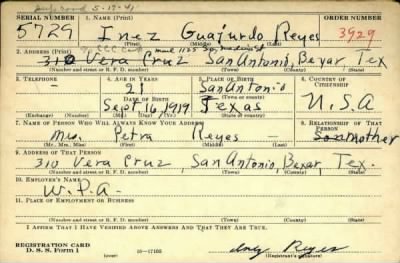 5-17-41
SERIAL NUMBER 1. NAME (Print) ORDER NUMBER
5729 Inez Guajurdo Reyes 3929
(First) (Middle) (Last)
2. ADDRESS (Print)
310 Vera Cruz San Antonio, Bexar, Tex
(Number and street or R. F. D. number) (Town) (County) (State)
3. TELEPHONE 4. AGE IN YEARS 5. PLACE OF BIRTH 6. COUNTRY OF CITIZENSHIP
- 21 San Antonio
DATE OF BIRTH (Town or county)
Sept 16, 1919 Texas U.S.A
(Exchange) (No.) (Mo.) (Day) (Yr.) (State or country)
7. NAME OF PERSON WHO WILL ALWAYS KNOW YOUR ADDRESS 8. RELATIONSHIP OF THAT PERSON
Mrs. Petra Reyes - Son mother
(Mr., Mrs., Miss) (First) (Middle) (Last)
9. ADDRESS OF THAT PERSON
310 Vera Cruz, San Antonio, Bexar, Tex.
(Number and street or R. F. D. number) (Town) (County) (State)
10. EMPLOYER'S NAME
W.P.A.
11. PLACE OF EMPLOYMENT OR BUSINESS
(Number and street or R. F. D. number) (Town) (County) (State)
I AFFIRM THAT I HAVE VERIFIED ABOVE ANSWERS AND THAT THEY ARE TRUE.
REGISTRATION CARD
D. S. S. Form 1 16-17105 Inez Reyes
(over) (Registrant's signature)